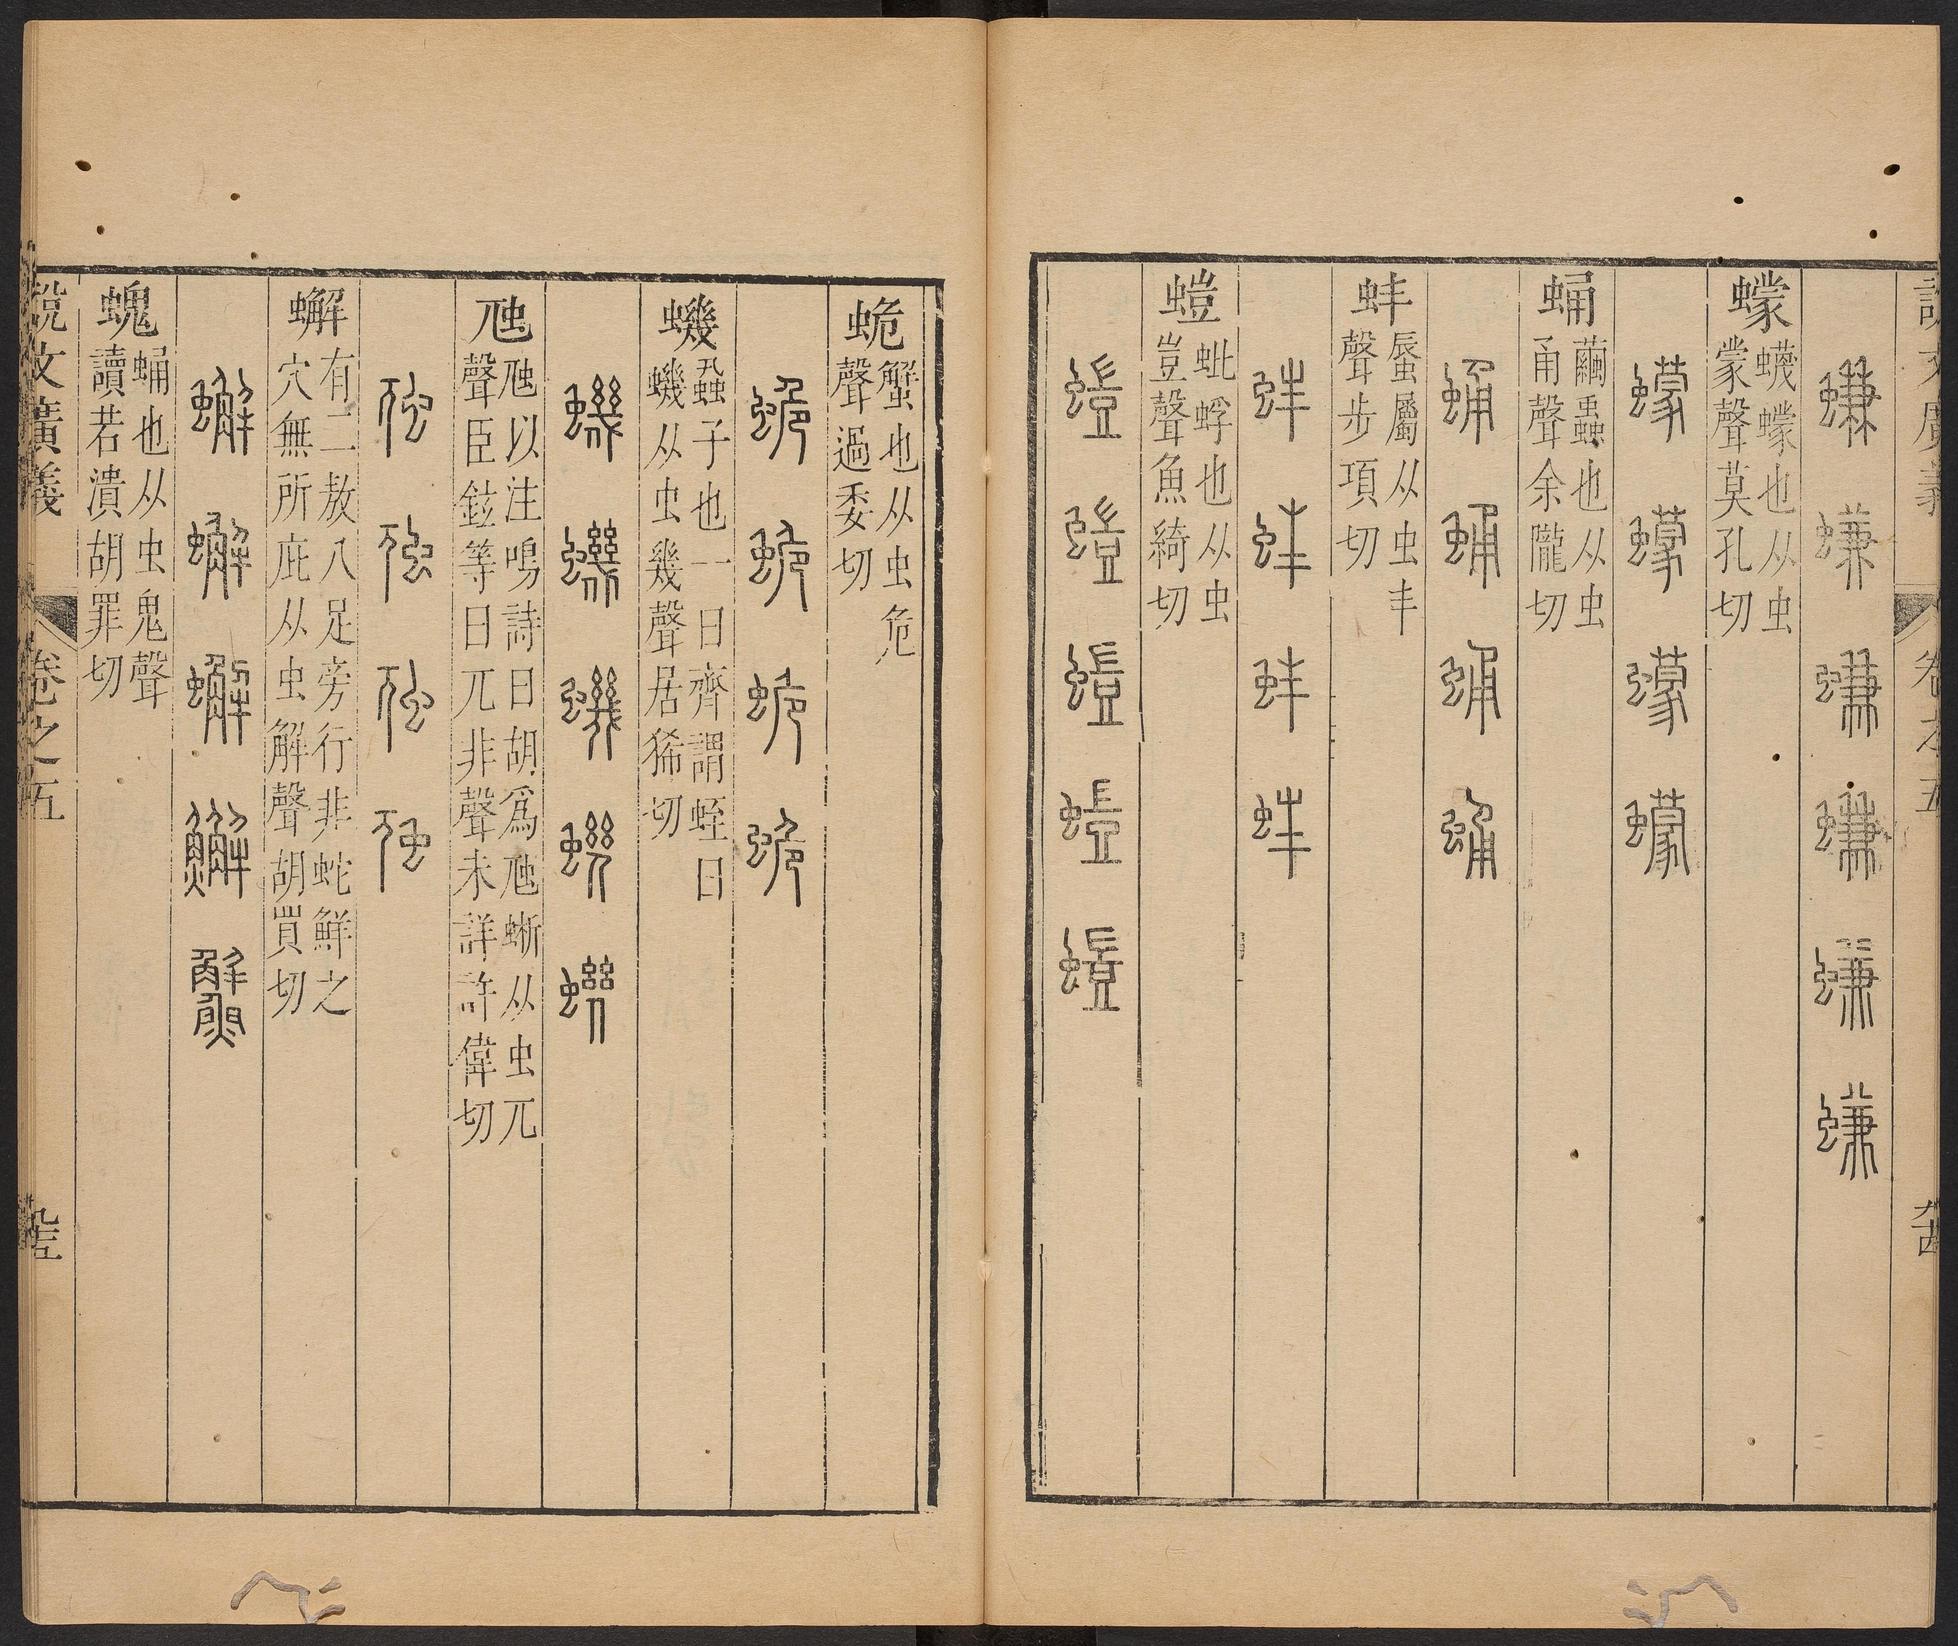 說文廣義 卷之五
螊 螊 螊 螊 螊 螊
蠓 蠛蠓也从虫
蒙聲莫孔切
蠓 蠓 蠓 蠓
蛹 繭蟲也从虫
甬聲余隴切
蛹 蛹 蛹 蛹
蚌 蜃屬从虫丰
聲步項切
蚌 蚌 蚌 蚌
螘 蚍蜉也从虫
豈聲魚綺切
螘 螘 螘 螘 螘
蛫 蟹也从虫危
聲過委切
蛫 蛫 蛫 蛫
蟣 蝨子也一曰齊謂蛭曰
蟣从虫幾聲居狶切
蟣 蟣 蟣 蟣 蟣
虺 虺以注鳴詩曰胡爲虺蜥从虫兀
聲臣鉉等曰兀非聲未詳許偉切
虺 虺 虺 虺
蠏 有二敖八足旁行非蛇鮮之
穴無所庇从虫解聲胡買切
蠏 蠏 蠏 鱰
螝 蛹也从虫鬼聲
讀若潰胡罪切
說文廣義 卷之五